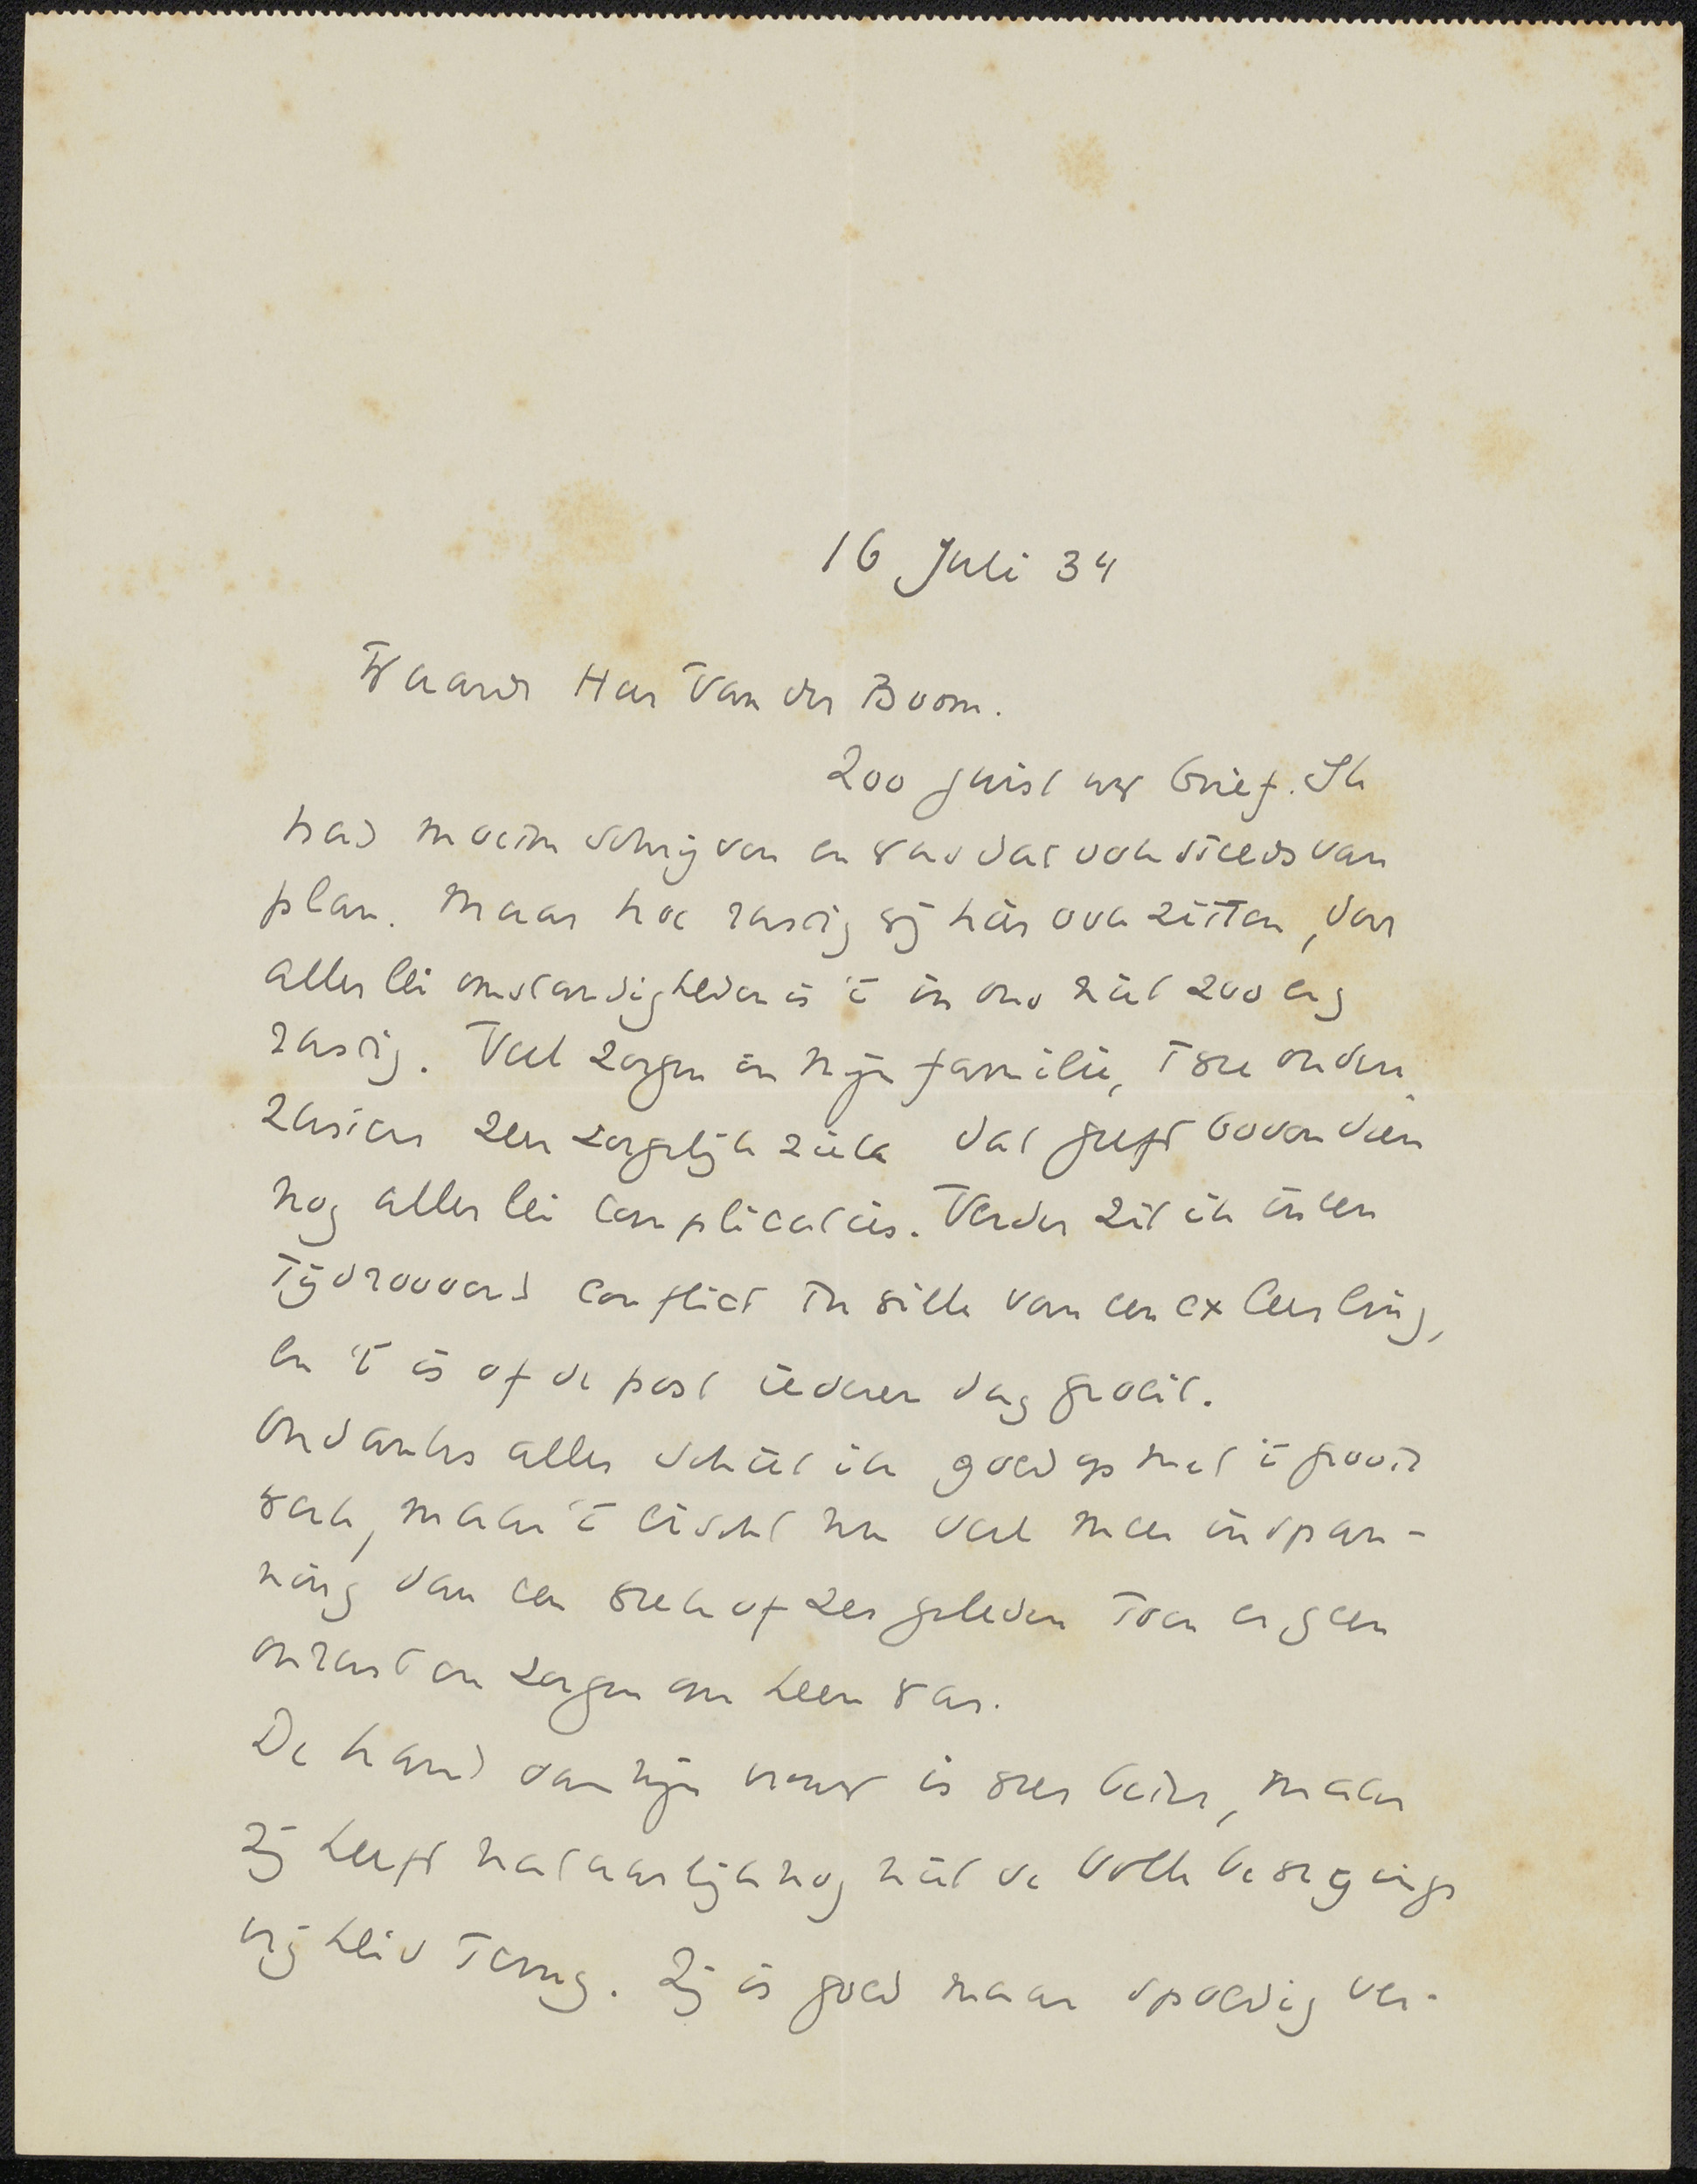 16 Juli 34
Waarde Heer Van der Boom.
Zoo juist uw brief. Ik
had moeten schrijven en was dat ook steeds van
plan. Maar hoe rustig wij hier ook zitten, door
allerlei omstandigheden is 't in ons niet zoo erg
rustig. Veel zorgen in mijn familie, twee oudere
zusters zeer zorgelijk ziek dat geeft bovendien
nog allerlei complicaties. Verder zit ik in een
tijdroovend conflict ter wille van een exleerling,
en 't is of de post iederen dag groeit.
Ondanks alles schiet ik goed op met 't groote
werk, maar 't eischt nu veel meer inspan-
ning dan een week of zes geleden toen er geen
onrust en zorgen om heen was.
De hand van mijn vrouw is weer beter, maar
zij heeft natuurlijk nog niet de volle bewegings
vrijheid terug. Zij is goed maar spoedig ver-